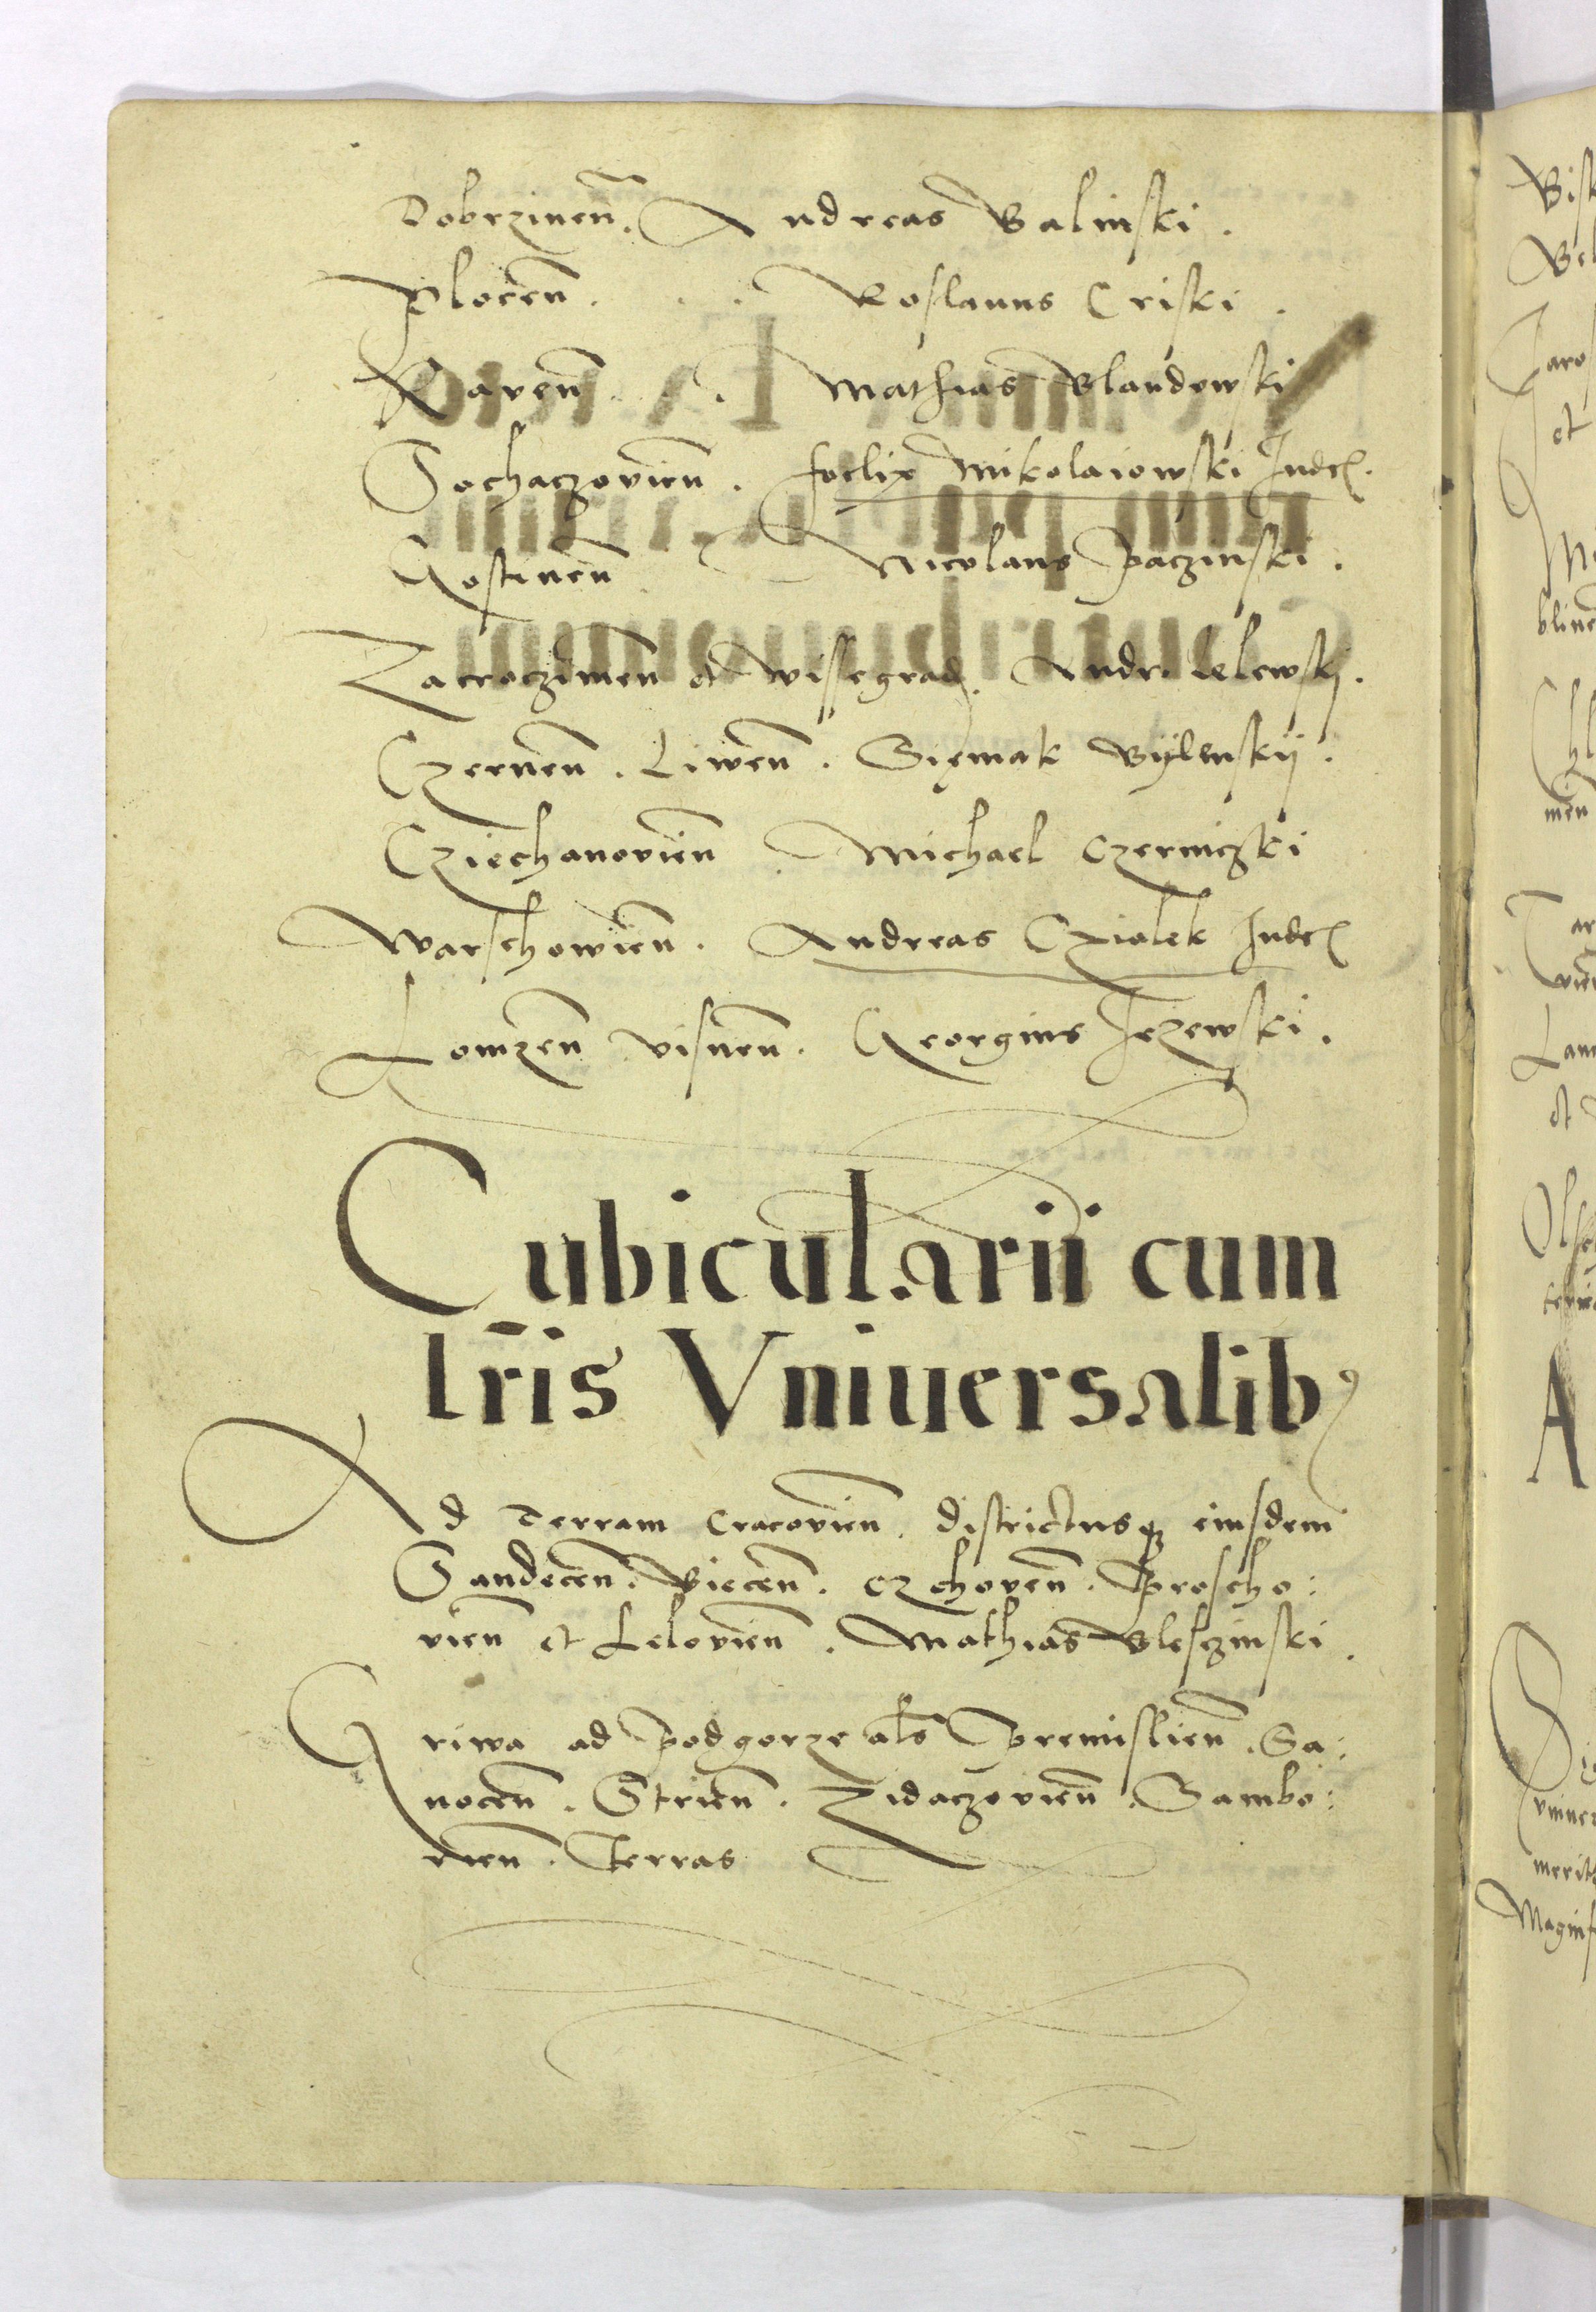 Dobrzinen̄. Andreas Balinski.
Plocen̄. . . Roslauus Criski.
Raven̄. . Mathias Glandowski
Sochaczovien̄. foelix Mikolaiowski Judex.
Gostinen̄ Nicolaus Paczinski.
Zacroczimen̄ et Wissegrad. Andr. Lelewskj.
Czernen̄. Liwen̄. Sięmak Bÿlinskÿ.
Cziechanovien̄. Michael Czerniczki
Warschowien̄. Andreas Cziolek Judex
Lomzen̄ visnen̄. Georgius Jezewski.
Cubicularii cum
lr̄is Vniuersalibꝰ
Ad Terram Cracovien̄. districtusqꝫ eiusdem
Sandecen̄. Biecen̄. Czchoven̄. Proscho:
vien̄ et Lelovien̄. Mathias Blesczinski.
Griwa ad Podgorze al̄s Premislien̄. Sa:
nocen̄. Strien̄. Zidaczovien̄. Sambo:
rien̄. Terras